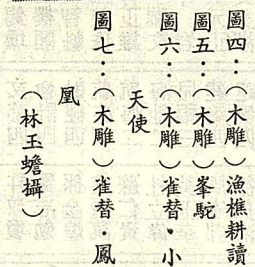 圖四：（木雕）漁樵耕讀
圖五：（木雕）峯駝
圖六：（木雕）雀替・小
天使
圖七：（木雕）雀替・鳳
凰
（林玉蟾攝）